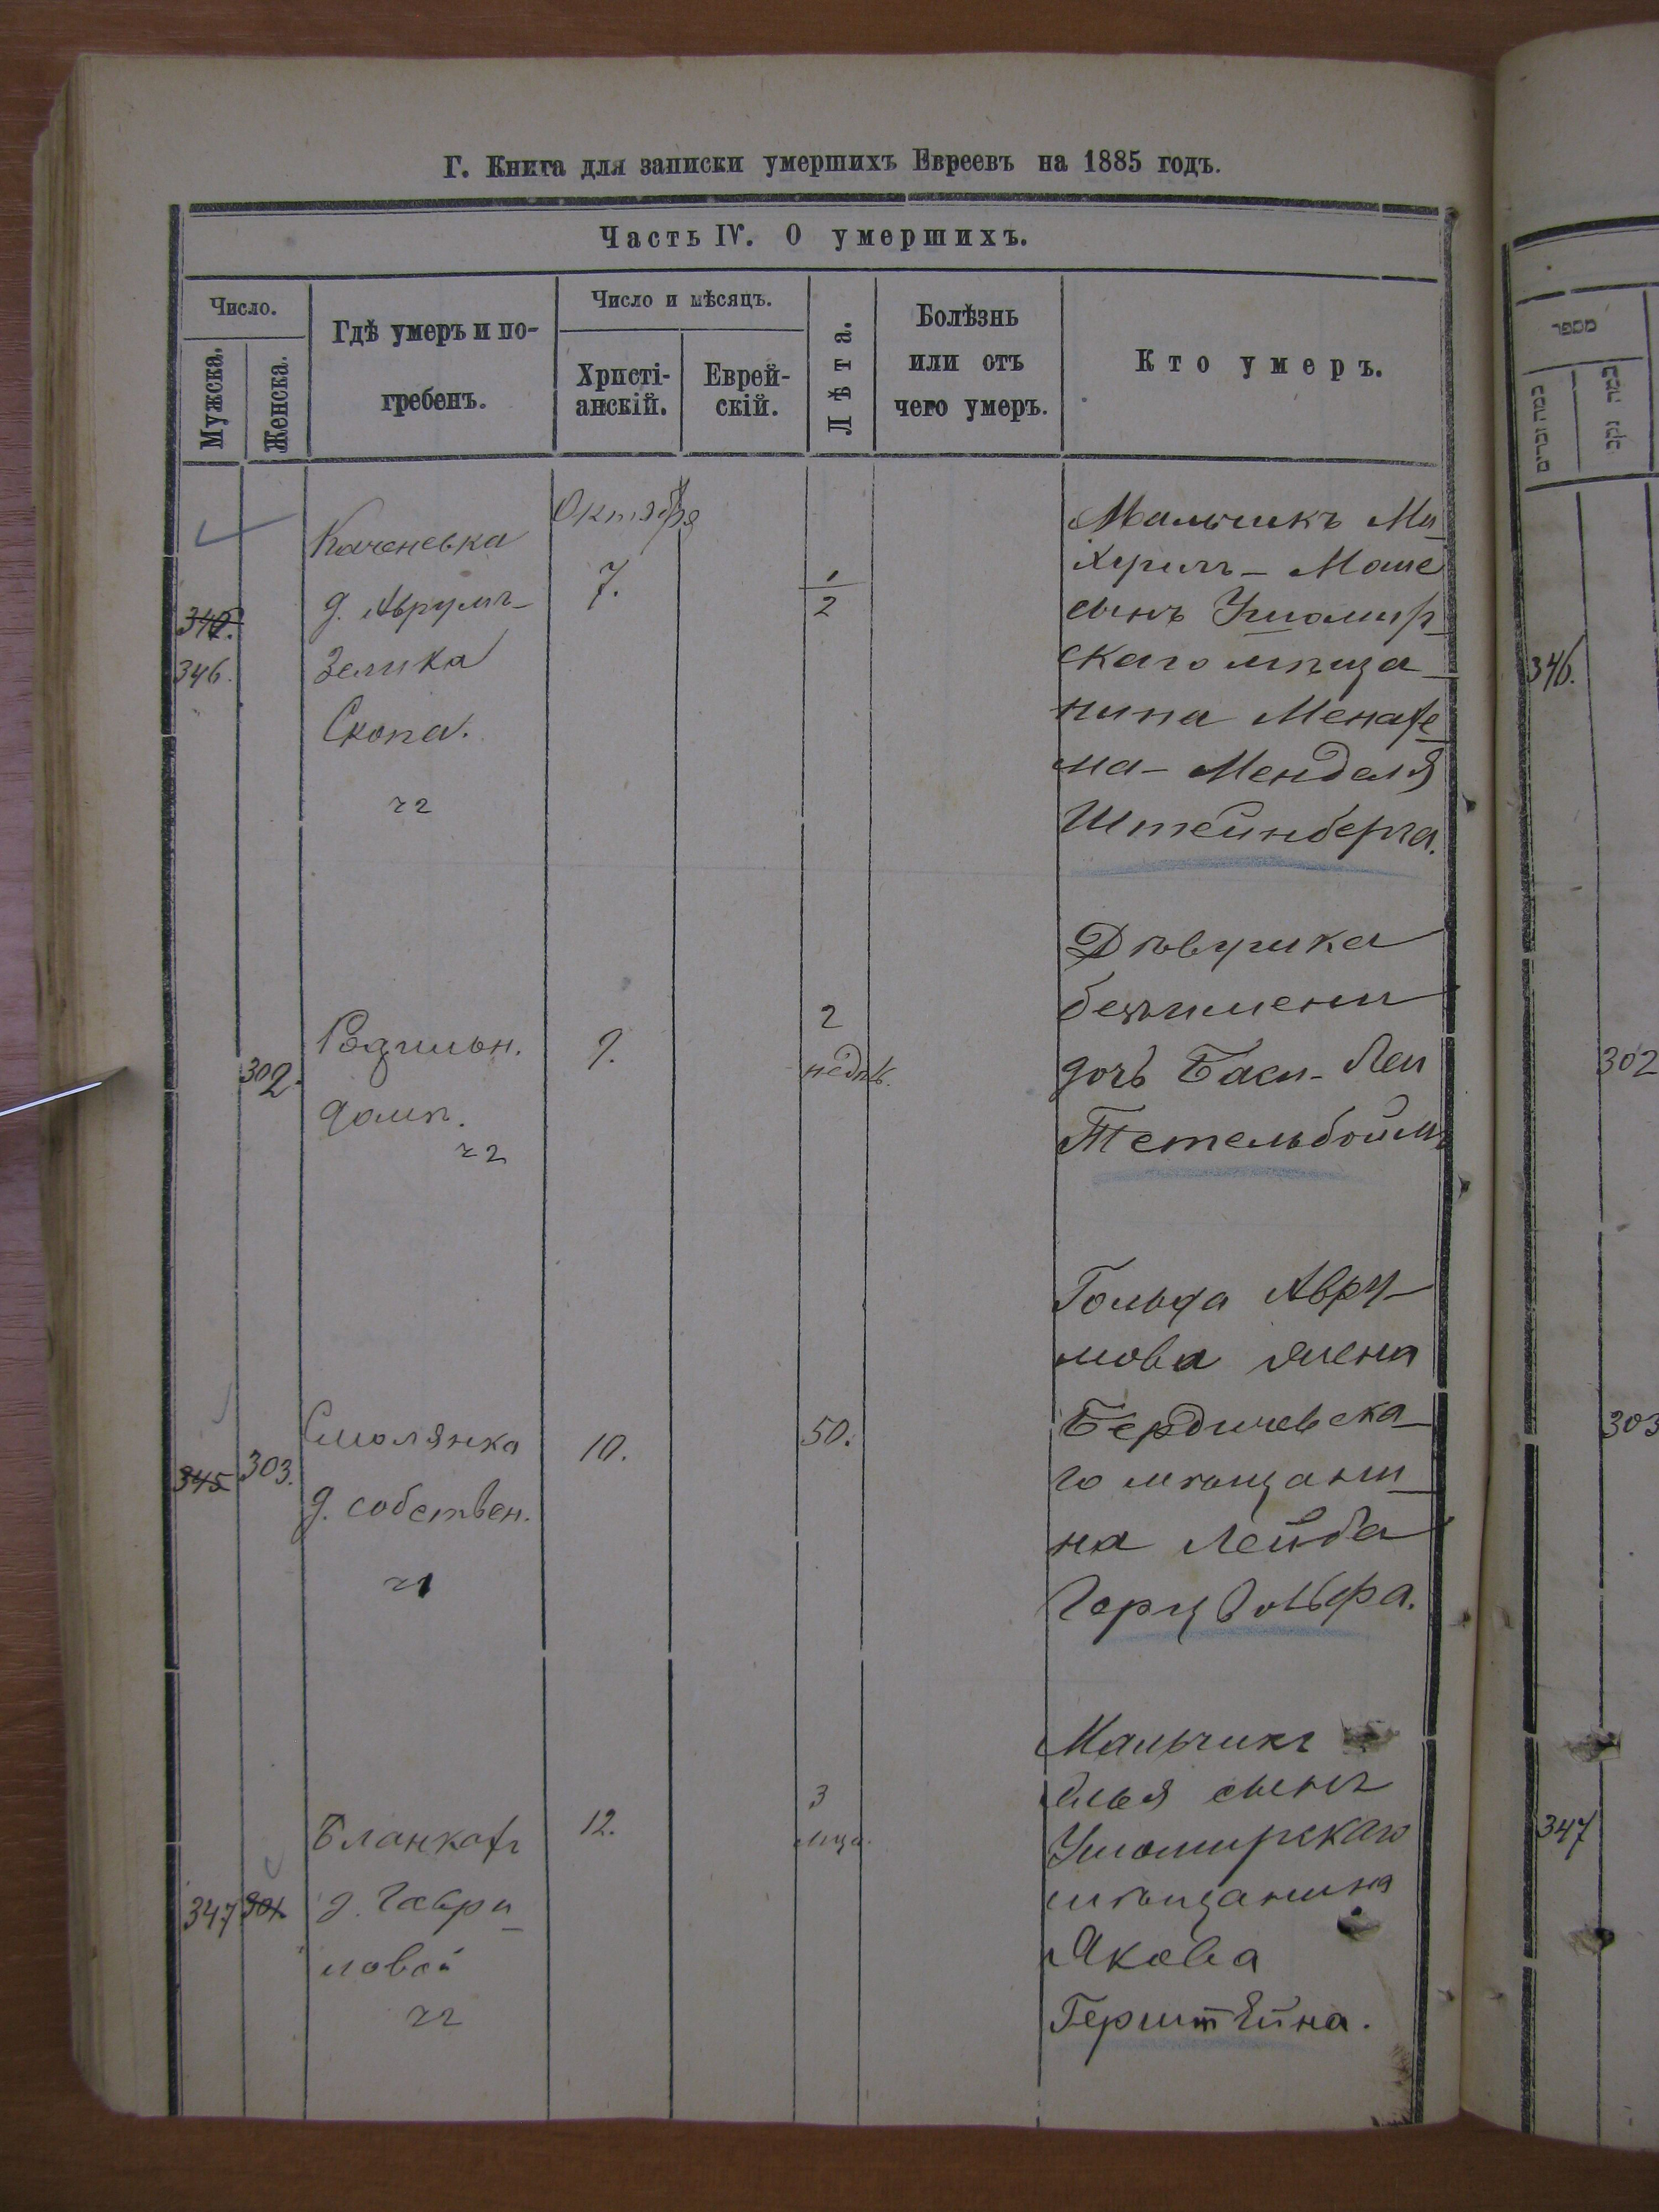 Г. Книга для записки умершихъ Евреевъ на 1885 годъ.
Часть IV. О умершихъ.
Число.
Мужска.
Женска.
Гдѣ умеръ и по-
гребенъ.
Число и мѣсяцъ.
Христі-
анскій.
Еврей-
скій.
Лѣта.
Болѣзнь
или отъ
чего умеръ.
Кто умеръ.
מספר
346.
Каченевка
д. Аврумъ-
Зелика
Скопа.
ч 2
Октября
7.
1/2
Мальчикъ
Моше
сынъ Ушомир_
скаго мѣща_
нина Менахе_
ма- Менделя
Штейнберга.
346.
302.
Родильн.
домѣ.
ч 2
9.
2
недѣ.
Дѣвушка
безъимени
дочь Баси-Леи
Тетельбоймъ
302
345
303.
Смолянка
д. собствен.
ч 1
10.
50.
Гольда Авру-
мова жена
Бердичевска_
го мѣщани_
на Лейба
Герцвольфа.
303
347
304
Бланкахъ
д. Гаври_
ловой
ч 2
12.
3
мца.
Мальчикъ
сынъ
Ушомирскаго
мѣщанина
Якова
Герштейна.
347